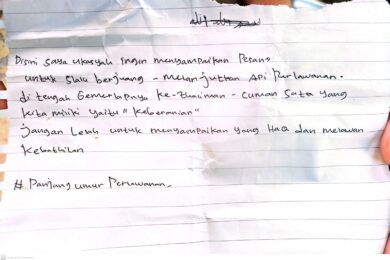 Disini saya ukasyah ingin menyampaikan pesan
untuk slalu berjuang - melanjutkan Api Perlawanan.
di tengah Gemerlapnya ke-zhaliman - cuman satu yang
kita miliki yaitu "keberanian"
jangan Lelah untuk menyampaikan yang Haq dan melawan
kebathilan
# Panjang umur Perlawanan.